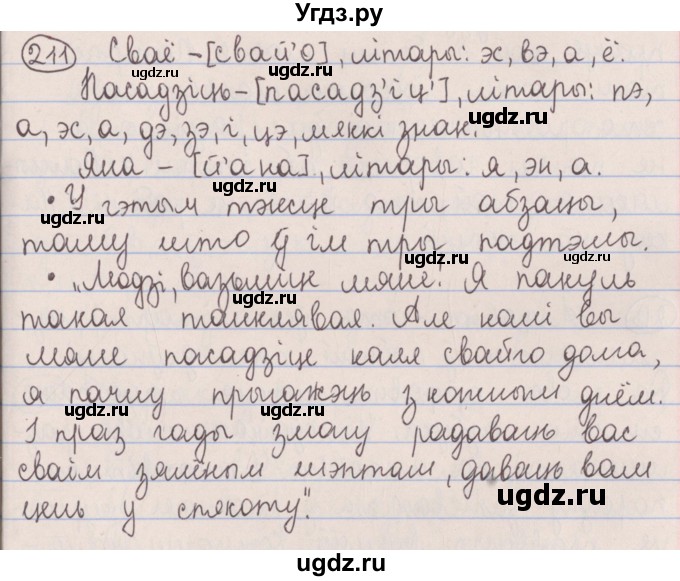 Угдз.ру
211 Сваё - [свай'о], літары: эс, вэ, а, ё.
Пасадзіць - [пасадз'іц'], літары: пэ,
а, эс, а, дэ, зэ, і, цэ, мяккі знак.
Яна - [й'ана], літары: я, эн, а.
• У гэтым тэксце тры абзацы,
таму што ў ім тры падтэмы.
• „Людзі, вазьміце мяне. Я пакуль
такая танклявая. Але калі вы
мяне пасадзіце каля свайго дома,
я пачну прыгажэць з кожным днём.
І праз гады змагу радаваць вас
сваім зялёным шэптам, даваць вам
цень у спякоту".
ugdz.ru
ugdz.ru
ugdz.ru
ugdz.ru
ugdz.ru
ugdz.ru
ugdz.ru
ugdz.ru
ugdz.ru
ugdz.ru
ugdz.ru
ugdz.ru
ugdz.ru